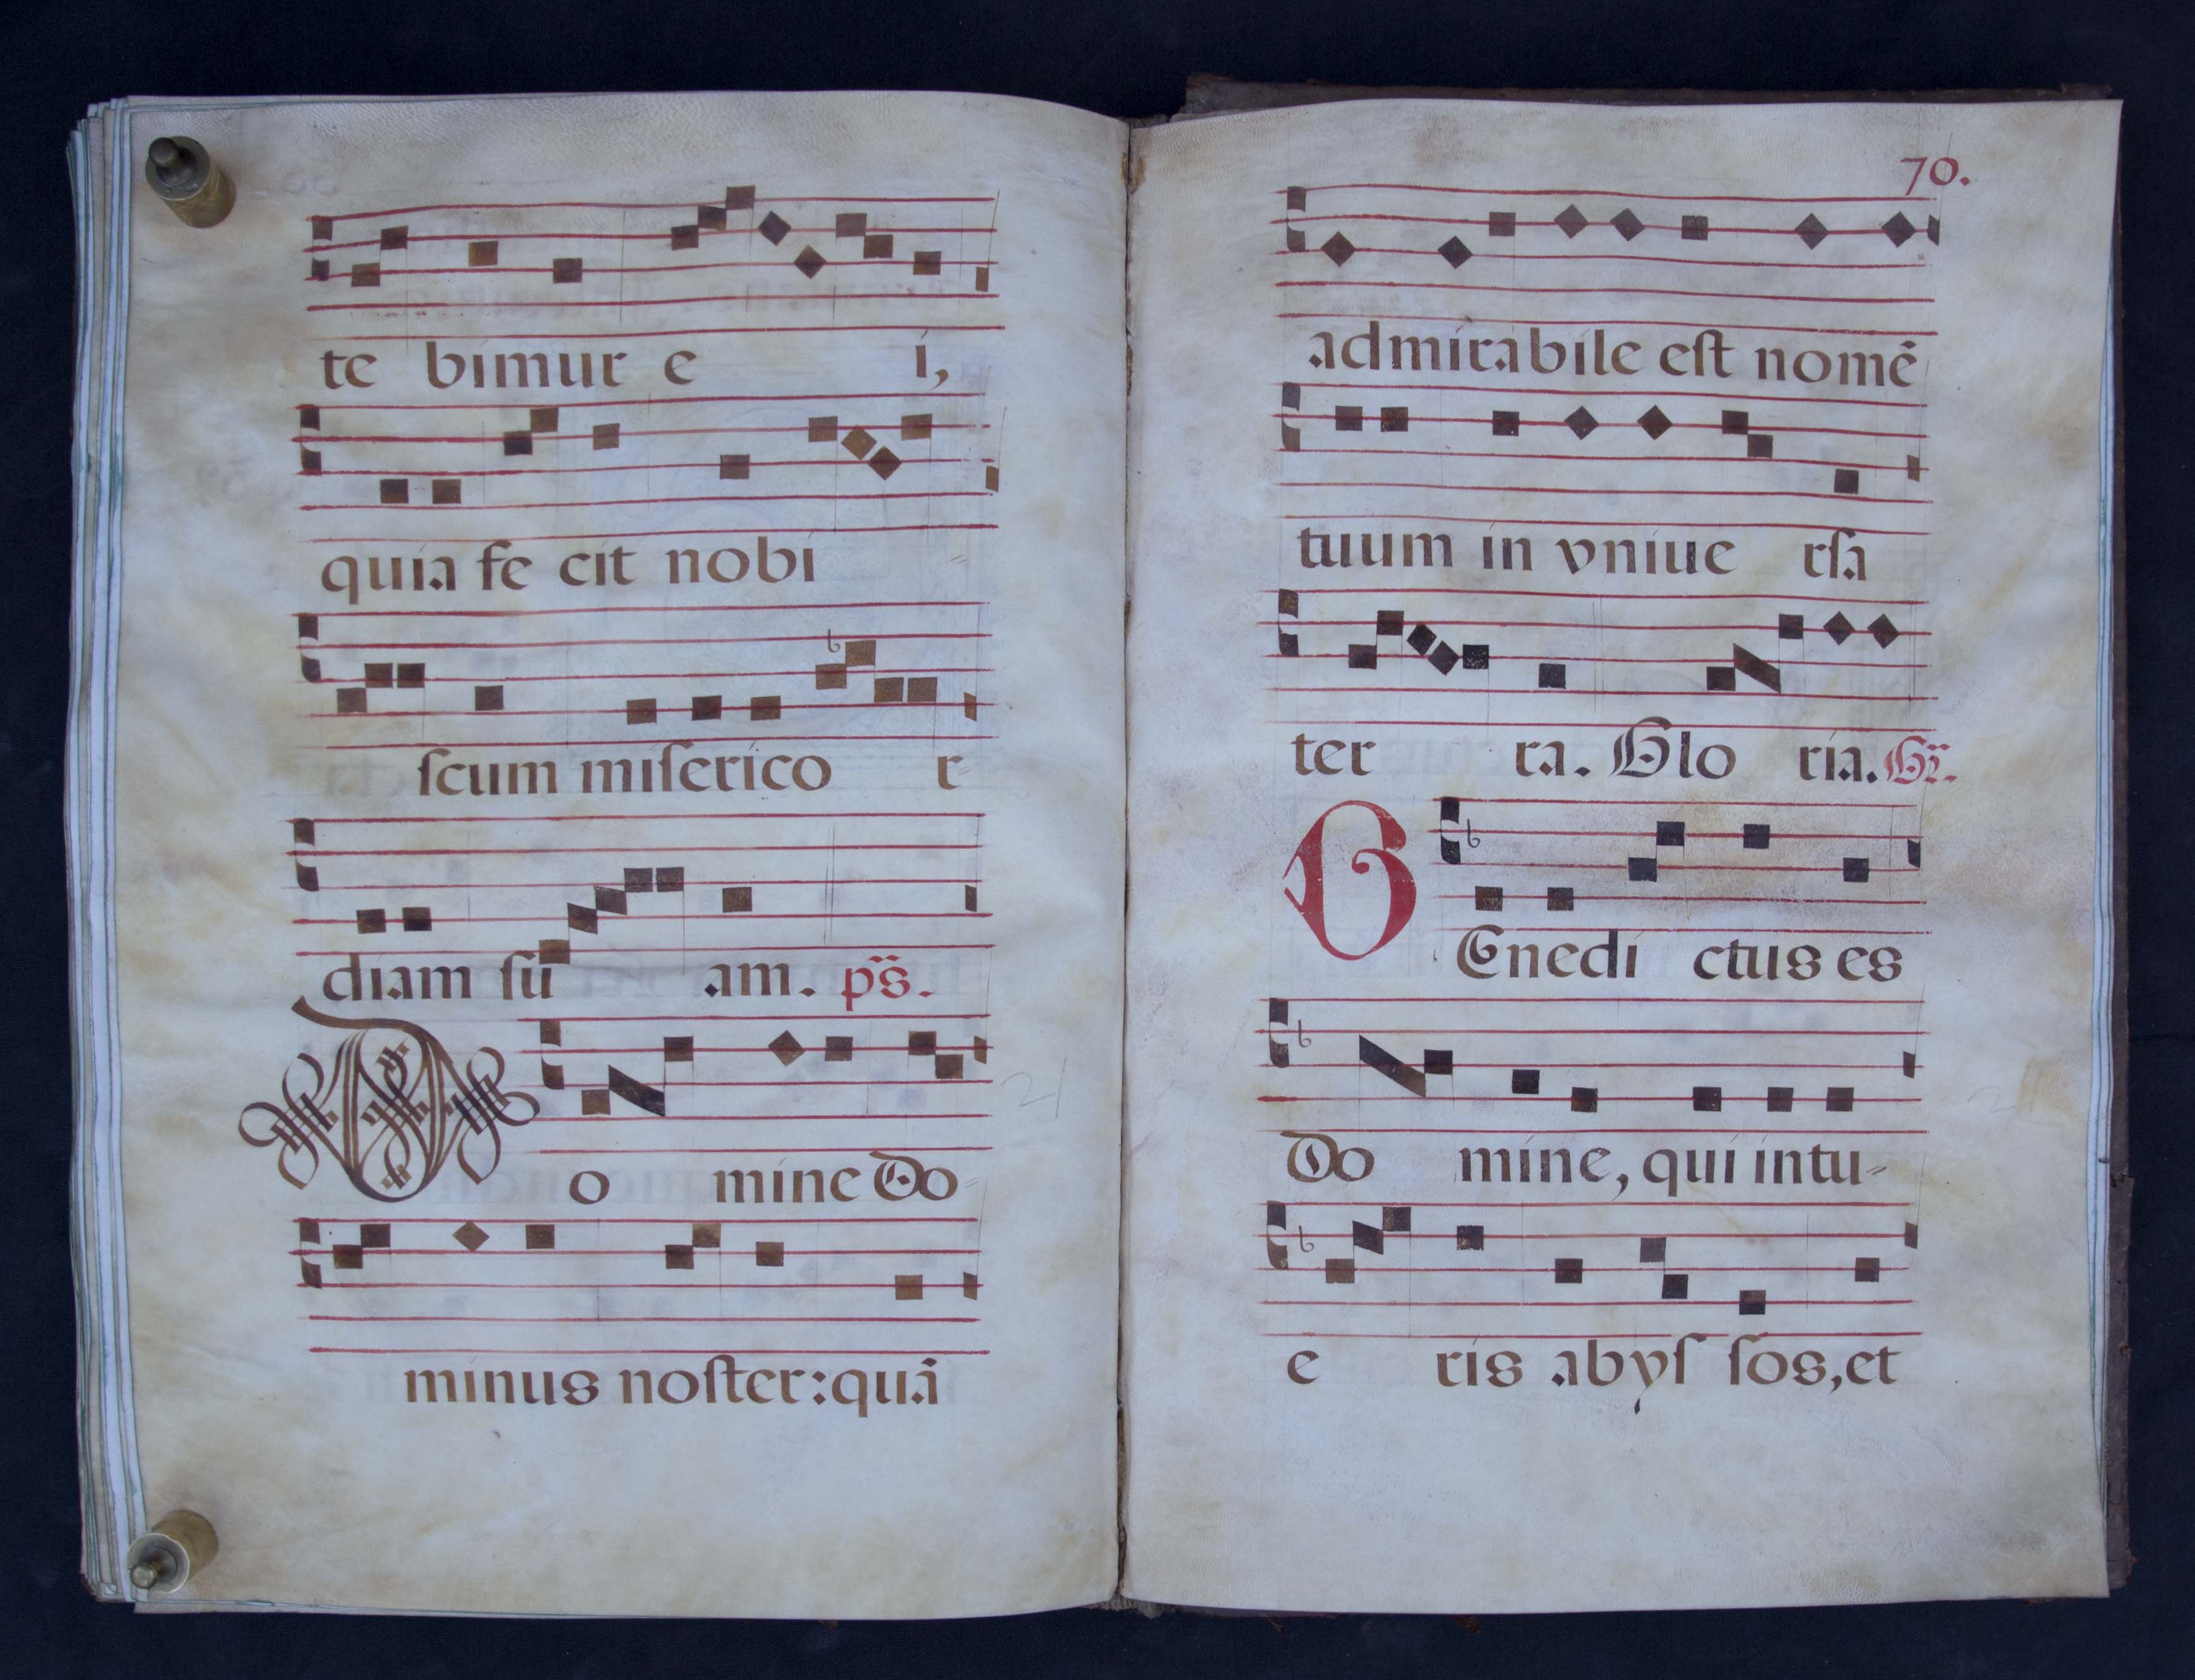 te bimur e i,
quia fe cit nobi =
ſcum miſerico r-
diam ſu am. ps̈.
Do mine Do=
minus noſter: quā
70.
admirabile eſt nomē
tuum in vniue rſa
ter ra. Glo ria. Gr̈.
BEnedi ctus es
Do mine, qui intu-
e ris abyſ ſos, et